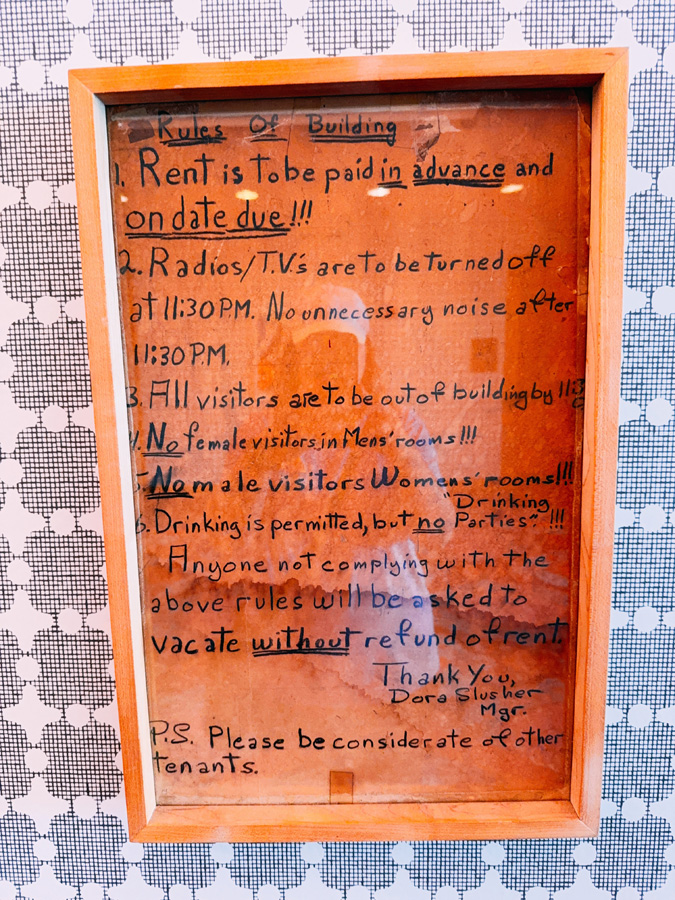 Rules Of Building
1. Rent is to be paid in advance and
on date due!!!
2. Radios/T.V.'s are to be turned off
at 11:30 P.M. No unnecessary noise after
11:30 P.M.
3. All visitors are to be out of building by
4. No female visitors in Mens' rooms!!!
5. No male visitors Womens' rooms!!!
6. Drinking is permitted, but no "Drinking
Parties" !!!
Anyone not complying with the
above rules will be asked to
vacate without refund of rent.
Thank You,
Dora Slusher
Mgr.
P.S. Please be considerate of other
tenants.